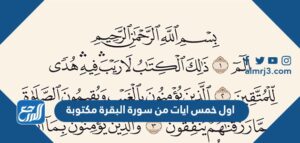 بِسْمِ اللَّهِ الرَّحْمَٰنِ الرَّحِيمِ
الٓمٓ ١ ذَٰلِكَ الْكِتَابُ لَا رَيْبَ فِيهِ هُدًى
لِّلْمُتَّقِينَ ٢ الَّذِينَ يُؤْمِنُونَ بِالْغَيْبِ وَيُقِيمُونَ الصَّلَاةَ
وَمِمَّا رَزَقْنَاهُمْ يُنفِقُونَ ٣ وَالَّذِينَ يُؤْمِنُونَ بِمَا
almrj3.com
اول خمس ايات من سورة البقرة مكتوبة
المرجع